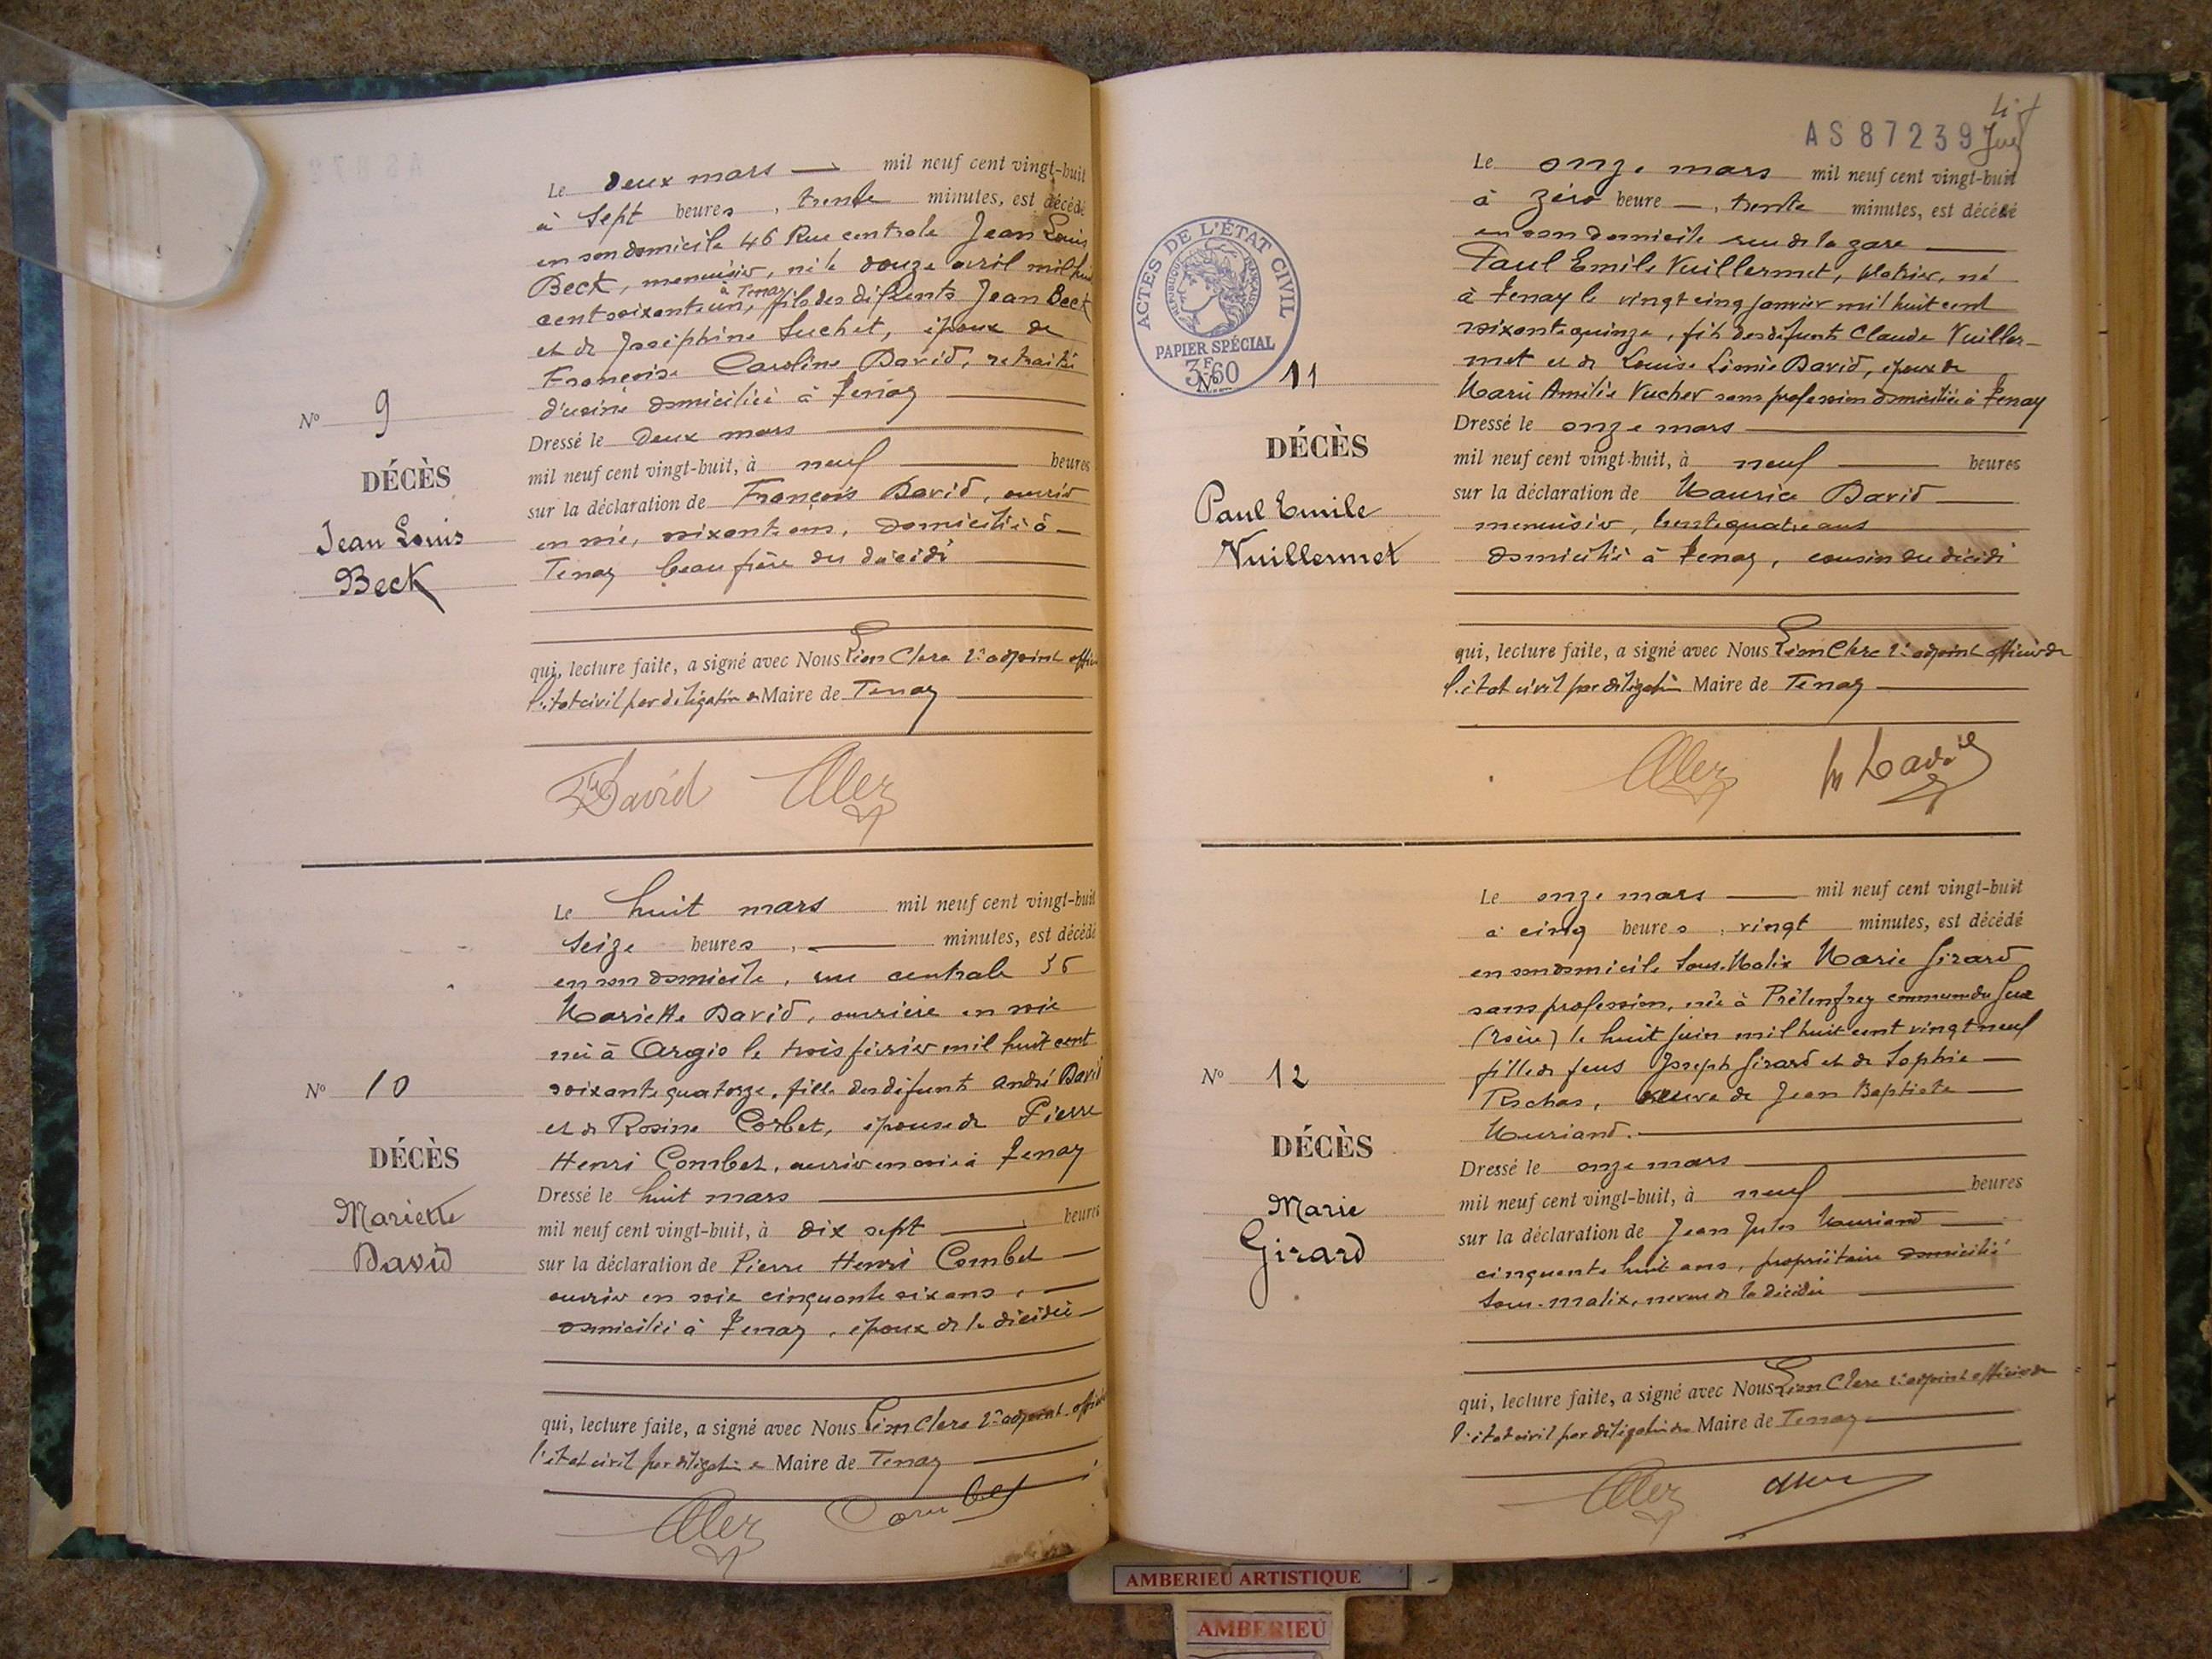 Le deux mars mil neuf cent vingt-huit
à Sept heures, trente minutes, est décédé
en son domicile 46 Rue centrale Jean Louis
Beck, menuisier, né le douze avril mil huit
à Tenay
cent soixante un, fils des défunts Jean Beck
et de Joséphine Suchet, époux de
Françoise Caroline David, retraitée
d'usine domiciliée à Tenay
Nº 9
Dressé le Deux mars
mil neuf cent vingt-huit, à neuf heures
DÉCÈS
sur la déclaration de François David, ouvrier
Jean Louis
en soie, soixante ans, domicilié à
Beck
Tenay beau frère du décédé
qui, lecture faite, a signé avec Nous Léon Clerc 2e adjoint officier
l'état civil par délégation du Maire de Tenay
F David
Le huit mars mil neuf cent vingt-huit
Seize heures, minutes, est décédé
en son domicile, rue centrale 56
Mariette David, ouvrière en soie
née à Argis le trois février mil huit cent
Nº 10
soixante quatorze, fille des défunts André David
et de Rosine Corbet, épouse de Pierre
DÉCÈS
Henri Combet, ouvrier en soie à Tenay
Dressé le huit mars
Mariette
mil neuf cent vingt-huit, à dix sept heures
David
sur la déclaration de Pierre Henri Combet
ouvrier en soie cinquante six ans,
domicilié à Tenay, époux de la décédée
qui, lecture faite, a signé avec Nous Léon Clerc 2e adjoint officier
l'état civil par délégation du Maire de Tenay
Combet
AS 87239
Le onze mars mil neuf cent vingt-huit
à zéro heure, trente minutes, est décédé
en son domicile rue de la gare
Paul Emile Vuillermet, platrier, né
à Tenay le vingt cinq janvier mil huit cent
soixante quinze, fils des défunts Claude Vuiller-
met et de Louise David, époux de
Marie Amélie Vucher sans profession domiciliée à Tenay
ACTES DE L'ÉTAT CIVIL
RÉPUBLIQUE FRANÇAISE
PAPIER SPÉCIAL
3F60
Nº 11
Dressé le onze mars
DÉCÈS
mil neuf cent vingt-huit, à neuf heures
sur la déclaration de Maurice David
Paul Emile
menuisier, trente quatre ans
Vuillermet
domicilié à Tenay, cousin du décédé
qui, lecture faite, a signé avec Nous Léon Clerc 2e adjoint officier de
l'état civil par délégation Maire de Tenay
M David
Le onze mars mil neuf cent vingt-huit
à cinq heures, vingt minutes, est décédé
en son domicile Sous-Malix Marie Girard
sans profession, née à Prélenfrey commune du Gua
(Isère) le huit juin mil huit cent vingt neuf
fille de feus Joseph Girard et de Sophie
Nº 12
Rochas, veuve de Jean Baptiste
Mouriand.
DÉCÈS
Dressé le onze mars
Marie
mil neuf cent vingt-huit, à neuf heures
Girard
sur la déclaration de Jean Jules Mouriand
cinquante huit ans, propriétaire domicilié
Sous-malix, neveu de la décédée
qui, lecture faite, a signé avec Nous Léon Clerc 2e adjoint officier de
l'état civil par délégation du Maire de Tenay
AMBERIEU ARTISTIQUE
AMBERIEU